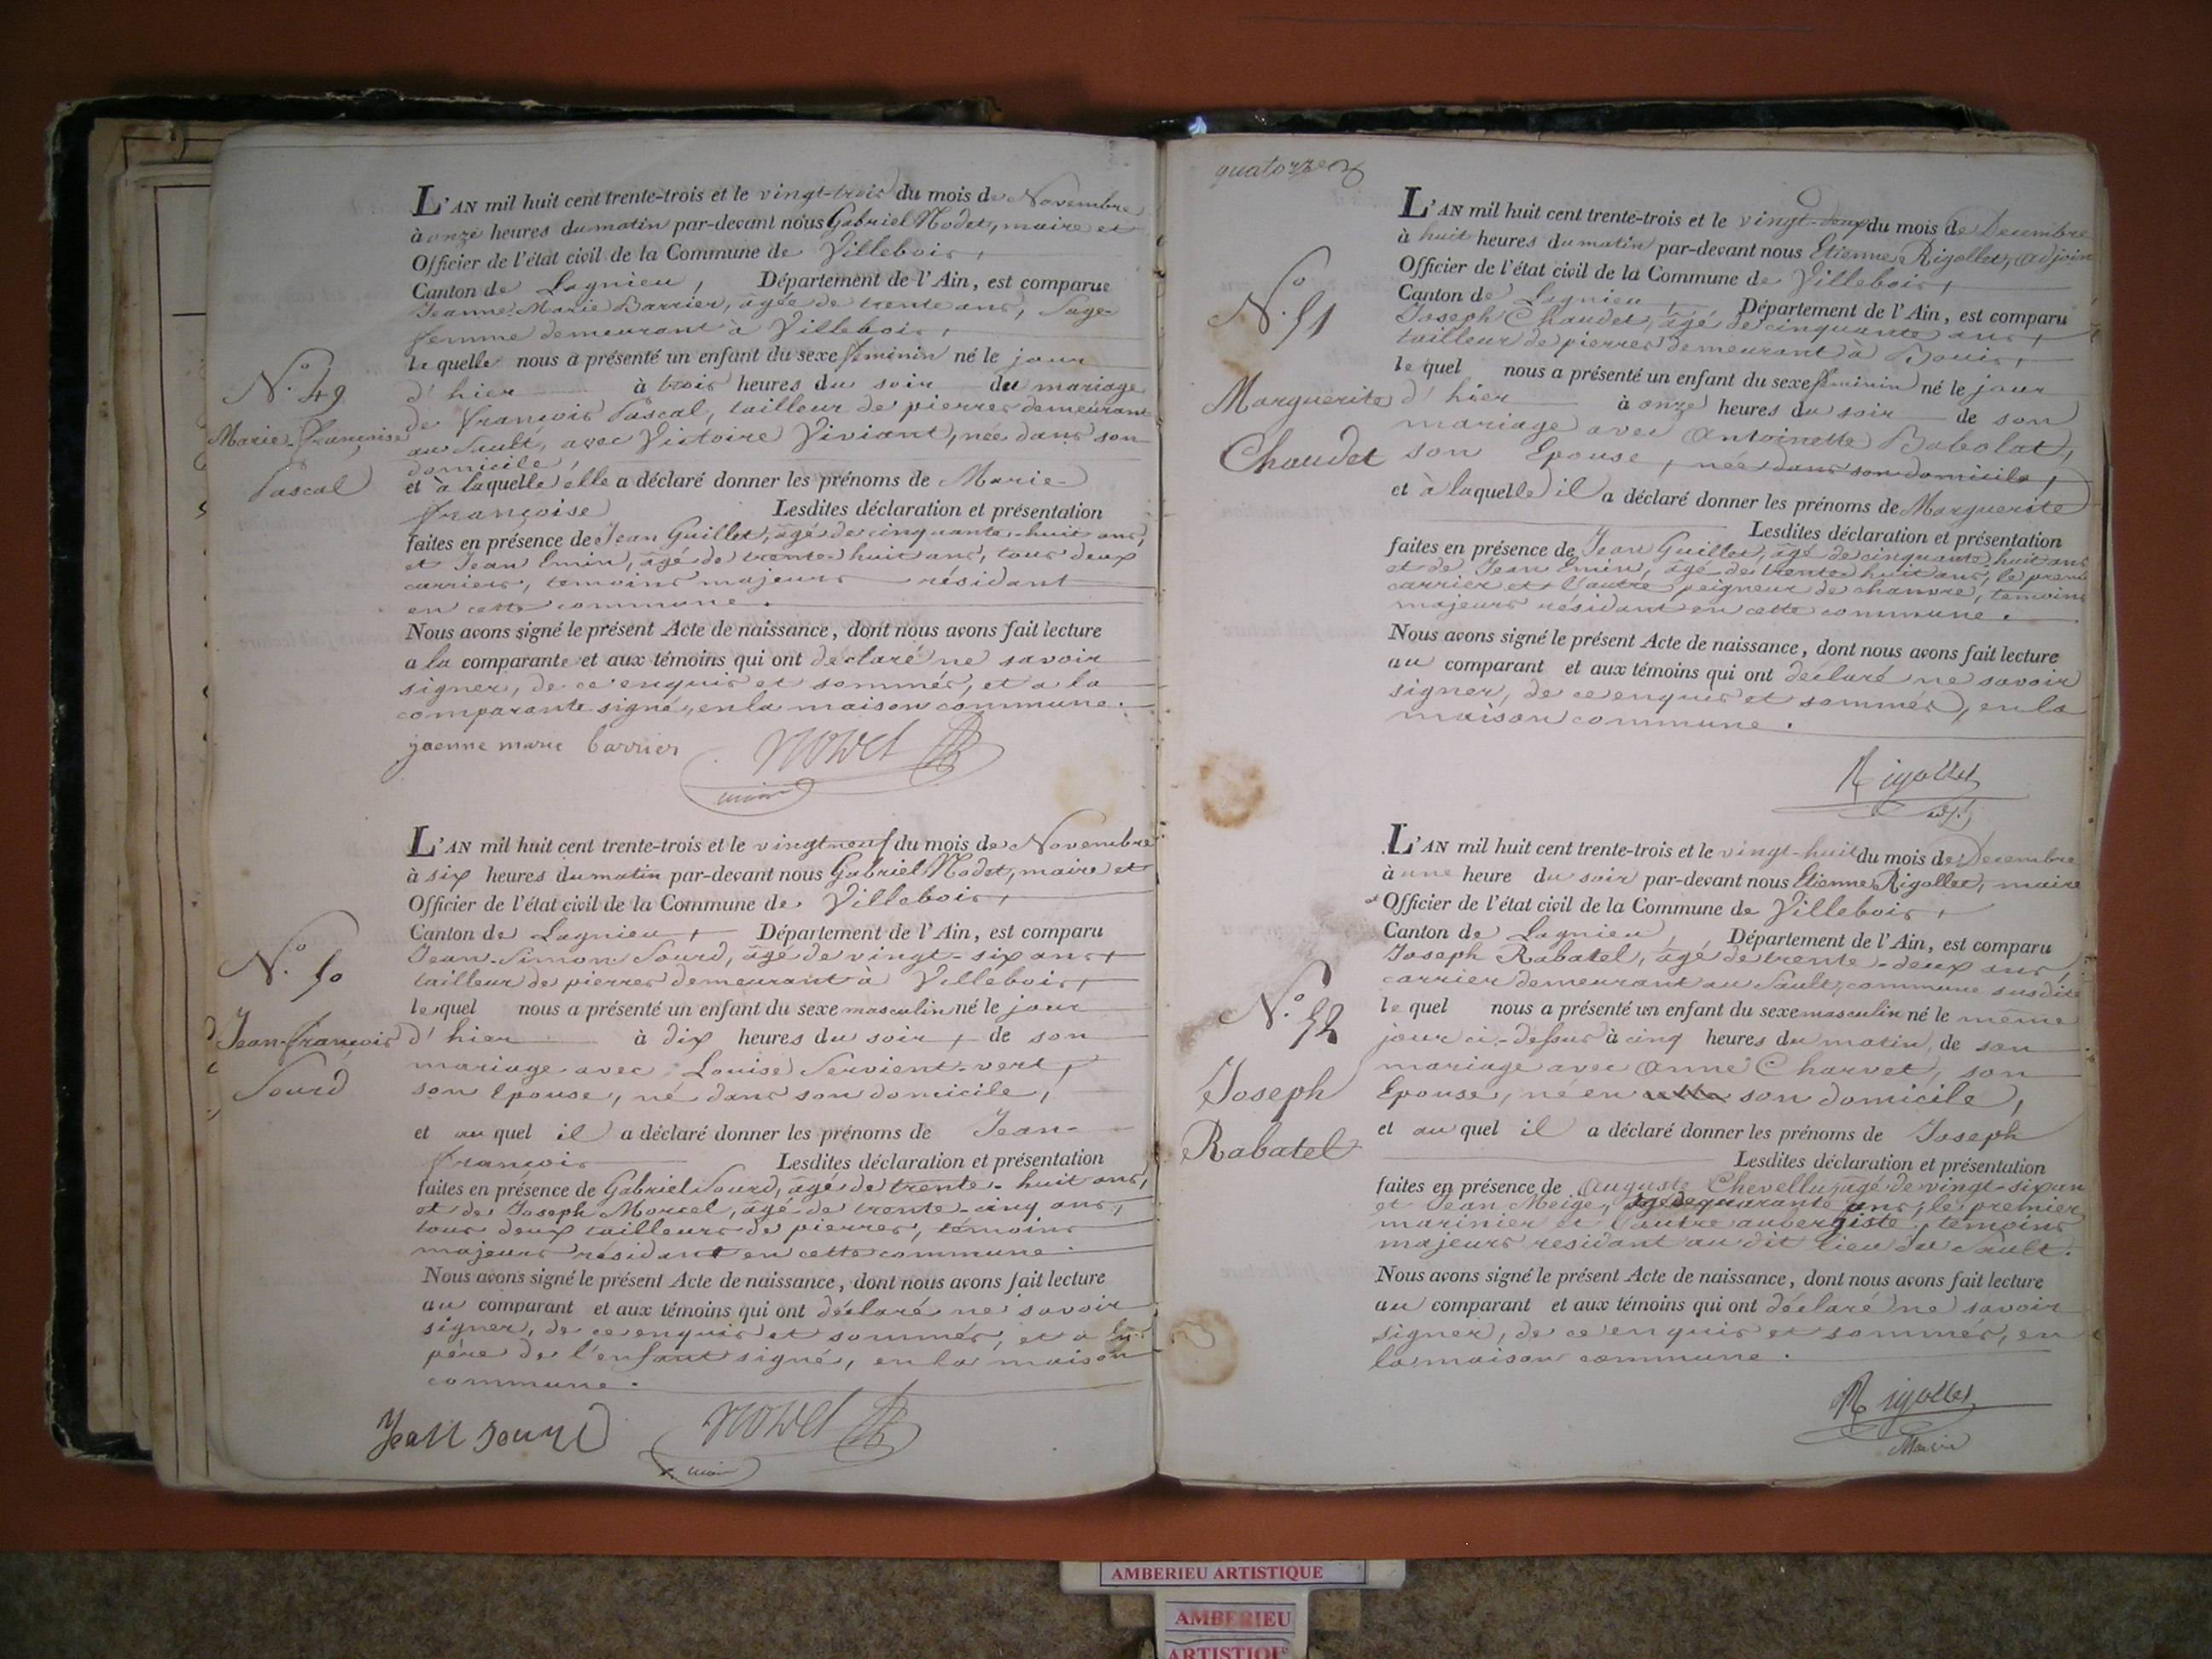 L'AN mil huit cent trente-trois et le vingt-trois du mois de Novembre
à onze heures du matin par-devant nous Gabriel Nodet, maire et
Officier de l'état civil de la Commune de Villebois,
Canton de Lagnieu, Département de l'Ain, est comparue
Jeanne-Marie Barrier, âgée de trente ans, Sage-
femme demeurant à Villebois,
la quelle nous a présenté un enfant du sexe féminin né le jour
d'hier à trois heures du soir du mariage
de françois Pascal, tailleur de pierres demeurant
au Sault, avec Victoire Viviant, née dans son
domicile,
et à laquelle elle a déclaré donner les prénoms de Marie-
françoise Lesdites déclaration et présentation
faites en présence de Jean Guillet, âgé de cinquante-huit ans,
et Jean Emin, âgé de trente-huit ans, tous deux
carriers, temoins majeurs résidant
en cette commune.
Nous avons signé le présent Acte de naissance, dont nous avons fait lecture
a la comparante et aux témoins qui ont declaré ne savoir
signer, de ce enquis et sommés, et a la
comparante signé, en la maison commune.
jaenne marie barrier Nodet
maire
N.º 49
Marie-françoise
Pascal
L'AN mil huit cent trente-trois et le vingt neuf du mois de Novembre
à six heures du matin par-devant nous Gabriel Nodet, maire et
Officier de l'état civil de la Commune de Villebois,
Canton de Lagnieu, Département de l'Ain, est comparu
Jean-Simon Sourd, âgé de vingt-six ans,
tailleur de pierres demeurant à Villebois,
le quel nous a présenté un enfant du sexe masculin né le jour
d'hier à dix heures du soir, de son
mariage avec Louise Servient-vert,
son Epouse, né dans son domicile,
et au quel il a déclaré donner les prénoms de Jean-
françois Lesdites déclaration et présentation
faites en présence de Gabriel Sourd, âgé de trente-huit ans,
et de Joseph Morcel, âgé de trente-cinq ans,
tous deux tailleurs de pierres, témoins
majeurs résidant en cette commune.
Nous avons signé le présent Acte de naissance, dont nous avons fait lecture
au comparant et aux témoins qui ont déclaré ne savoir
signer, de ce enquis et sommés, et a le
père de l'enfant signé, en la maison
commune.
Jean Sourd Nodet
maire
N.º 50
Jean-françois
Sourd
quatorze
L'AN mil huit cent trente-trois et le vingt-deux du mois de Decembre
à huit heures du matin par-devant nous Etienne Rigollet, adjoin
Officier de l'état civil de la Commune de Villebois,
Canton de Lagnieu, Département de l'Ain, est comparu
Joseph Chaudet, âgé de cinquante ans,
tailleur de pierres demeurant à Bouis,
le quel nous a présenté un enfant du sexe féminin né le jour
d'hier à onze heures du soir de son
mariage avec Antoinette Babolat,
son Epouse, née dans son domicile,
et à laquelle il a déclaré donner les prénoms de Marguerite
Lesdites déclaration et présentation
faites en présence de Jean Guillet, âgé de cinquante-huit ans
et de Jean Emin, âgé de trente-huit ans, le premier
carrier et l'autre peigneur de chanvre, temoins
majeurs résidant en cette commune.
Nous avons signé le présent Acte de naissance, dont nous avons fait lecture
au comparant et aux témoins qui ont déclaré ne savoir
signer, de ce enquis et sommés, en la
maison commune.
Rigollet
adj.
N.º 51
Marguerite
Chaudet
L'AN mil huit cent trente-trois et le vingt-huit du mois de Decembre
à une heure du soir par-devant nous Etienne Rigollet, maire
et Officier de l'état civil de la Commune de Villebois,
Canton de Lagnieu, Département de l'Ain, est comparu
Joseph Rabatel, âgé de trente-deux ans,
carrier demeurant au Sault, commune susdite
le quel nous a présenté un enfant du sexe masculin né le même
jour ci-dessus à cinq heures du matin, de son
mariage avec Anne Charvet, son
Epouse, né en son domicile,
et au quel il a déclaré donner les prénoms de Joseph
Lesdites déclaration et présentation
faites en présence de Auguste Chevellu, âgé de vingt-six an
et Jean Meige, âgé de quarante ans, le premier
marinier et l'autre aubergiste, temoins
majeurs residant au dit lieu du Sault.
Nous avons signé le présent Acte de naissance, dont nous avons fait lecture
au comparant et aux témoins qui ont déclaré ne savoir
signer, de ce enquis et sommés, en
la maison commune.
Rigollet
Maire
N.º 52
Joseph
Rabatel
AMBERIEU ARTISTIQUE
AMBERIEU
ARTISTIQUE